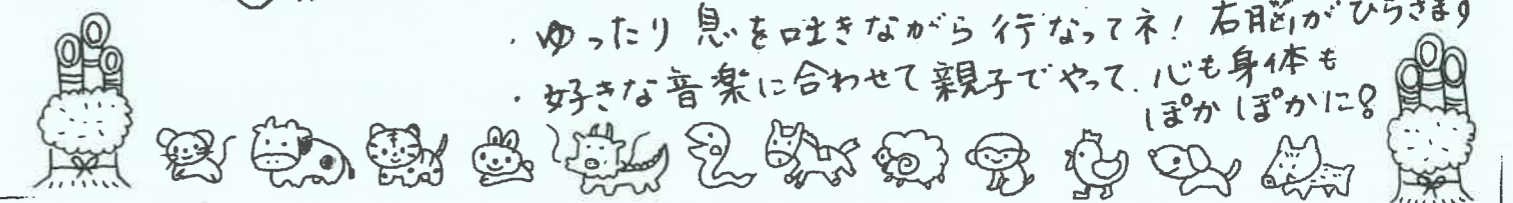 ・ゆったり 息を吐きながら 行なってネ！ 右脳がひらきます
・好きな音楽に合わせて親子でやって、心も身体も
ぽかぽかに？